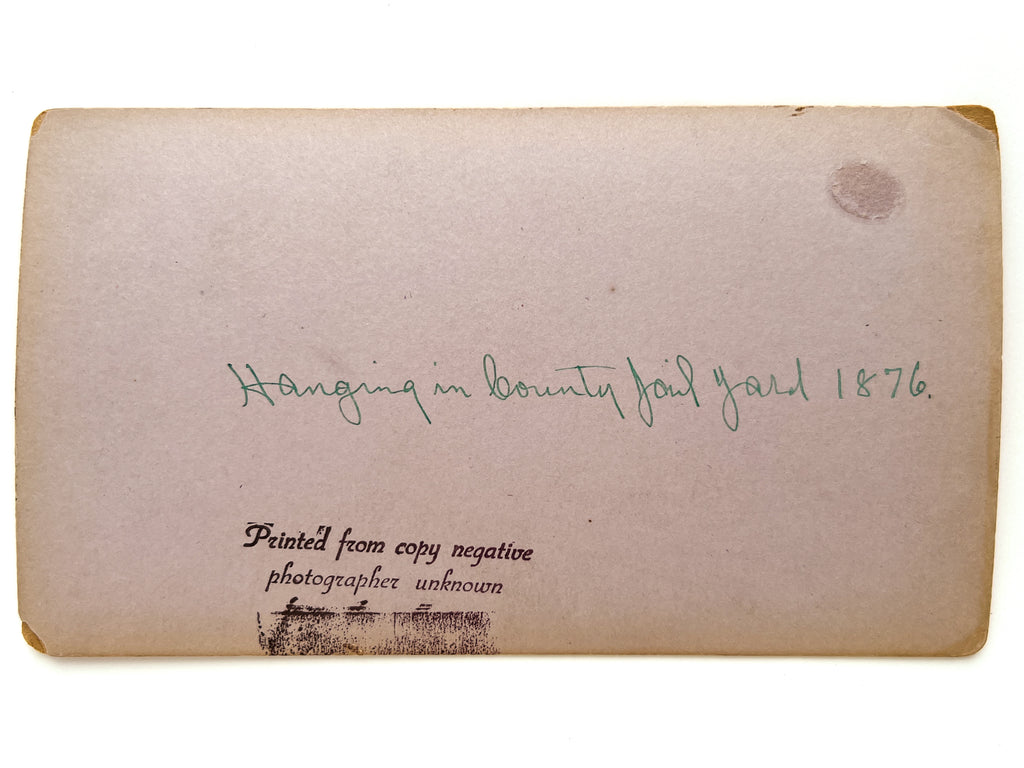 Hanging in County Jail Yard 1876.
Printed from copy negative
photographer unknown